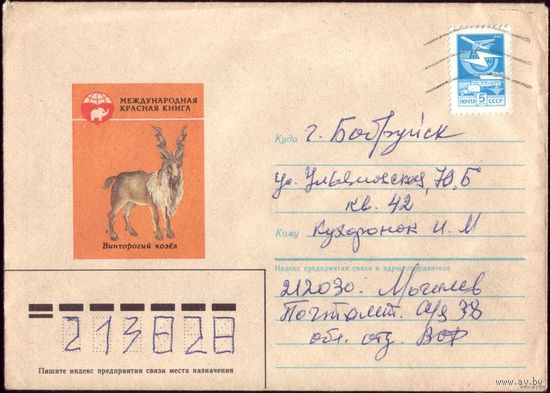 МЕЖДУНАРОДНАЯ
КРАСНАЯ КНИГА
Винторогий козёл
ПОЧТА 5 СССР
Куда г. Бобруйск
ул. Ульяновская, 70, Б
кв. 42
Кому Кухаронок И. М
Индекс предприятия связи и адрес отправителя
212030. Могилев
Почтамт. а/я 38
обл. отд. ВОФ
213828
Пишите индекс предприятия связи места назначения
www.ay.by